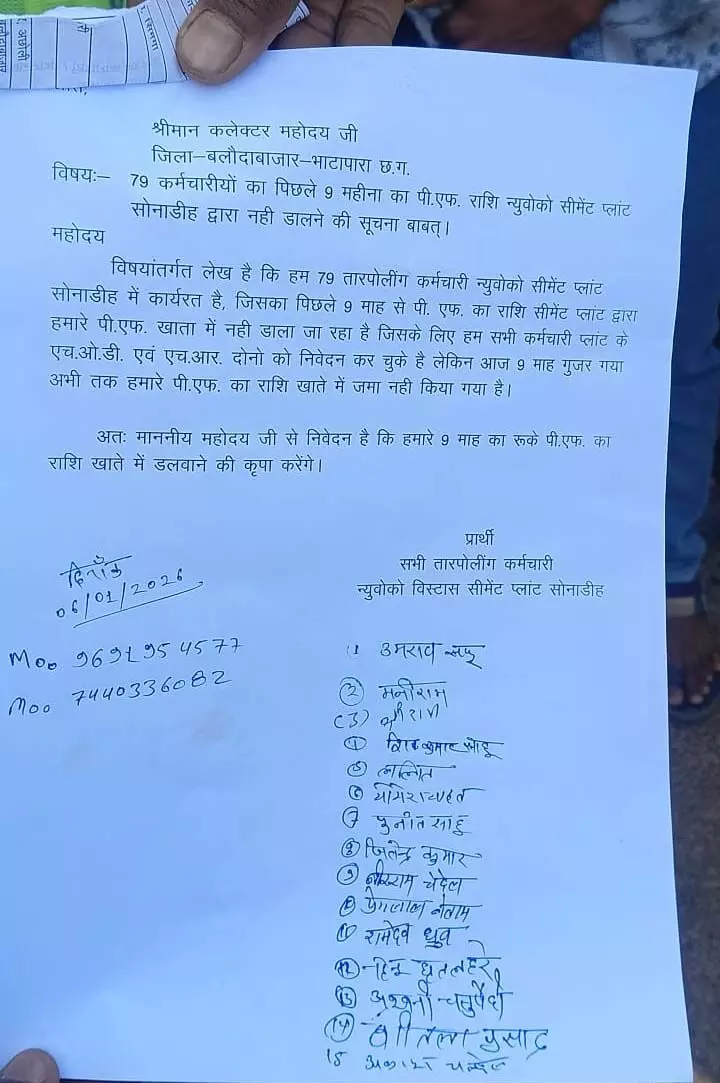 श्रीमान कलेक्टर महोदय जी
जिला–बलौदाबाजार–भाटापारा छ.ग.
विषयः– 79 कर्मचारीयों का पिछले 9 महीना का पी.एफ. राशि न्युवोको सीमेंट प्लांट
सोनाडीह द्वारा नही डालने की सूचना बाबत्।
महोदय
विषयांतर्गत लेख है कि हम 79 तारपोलींग कर्मचारी न्युवोको सीमेंट प्लांट
सोनाडीह में कार्यरत है, जिसका पिछले 9 माह से पी. एफ. का राशि सीमेंट प्लांट द्वारा
हमारे पी.एफ. खाता में नही डाला जा रहा है जिसके लिए हम सभी कर्मचारी प्लांट के
एच.ओ.डी. एवं एच.आर. दोनो को निवेदन कर चुके है लेकिन आज 9 माह गुजर गया
अभी तक हमारे पी.एफ. का राशि खाते में जमा नही किया गया है।
अतः माननीय महोदय जी से निवेदन है कि हमारे 9 माह का रूके पी.एफ. का
राशि खाते में डलवाने की कृपा करेंगे।
प्रार्थी
सभी तारपोलींग कर्मचारी
न्युवोको विस्टास सीमेंट प्लांट सोनाडीह
दिनाँक
06/01/2026
Moo 9691954577
Moo 7440336082
1 उमराव
(2) मनीराम
(3)
(4) शिव कुमार साहू
(5) ललित
(6)
(7) पुनीत साहू
(8) जितेन्द्र कुमार
(9) चंदेल
(10) प्रेमलाल नेताम
(11) रामदेव ध्रुव
(12) धृतलहरे
(13) अश्वनी चतुर्वेदी
(14) शीतल प्रसाद
15 अकाश चन्देल